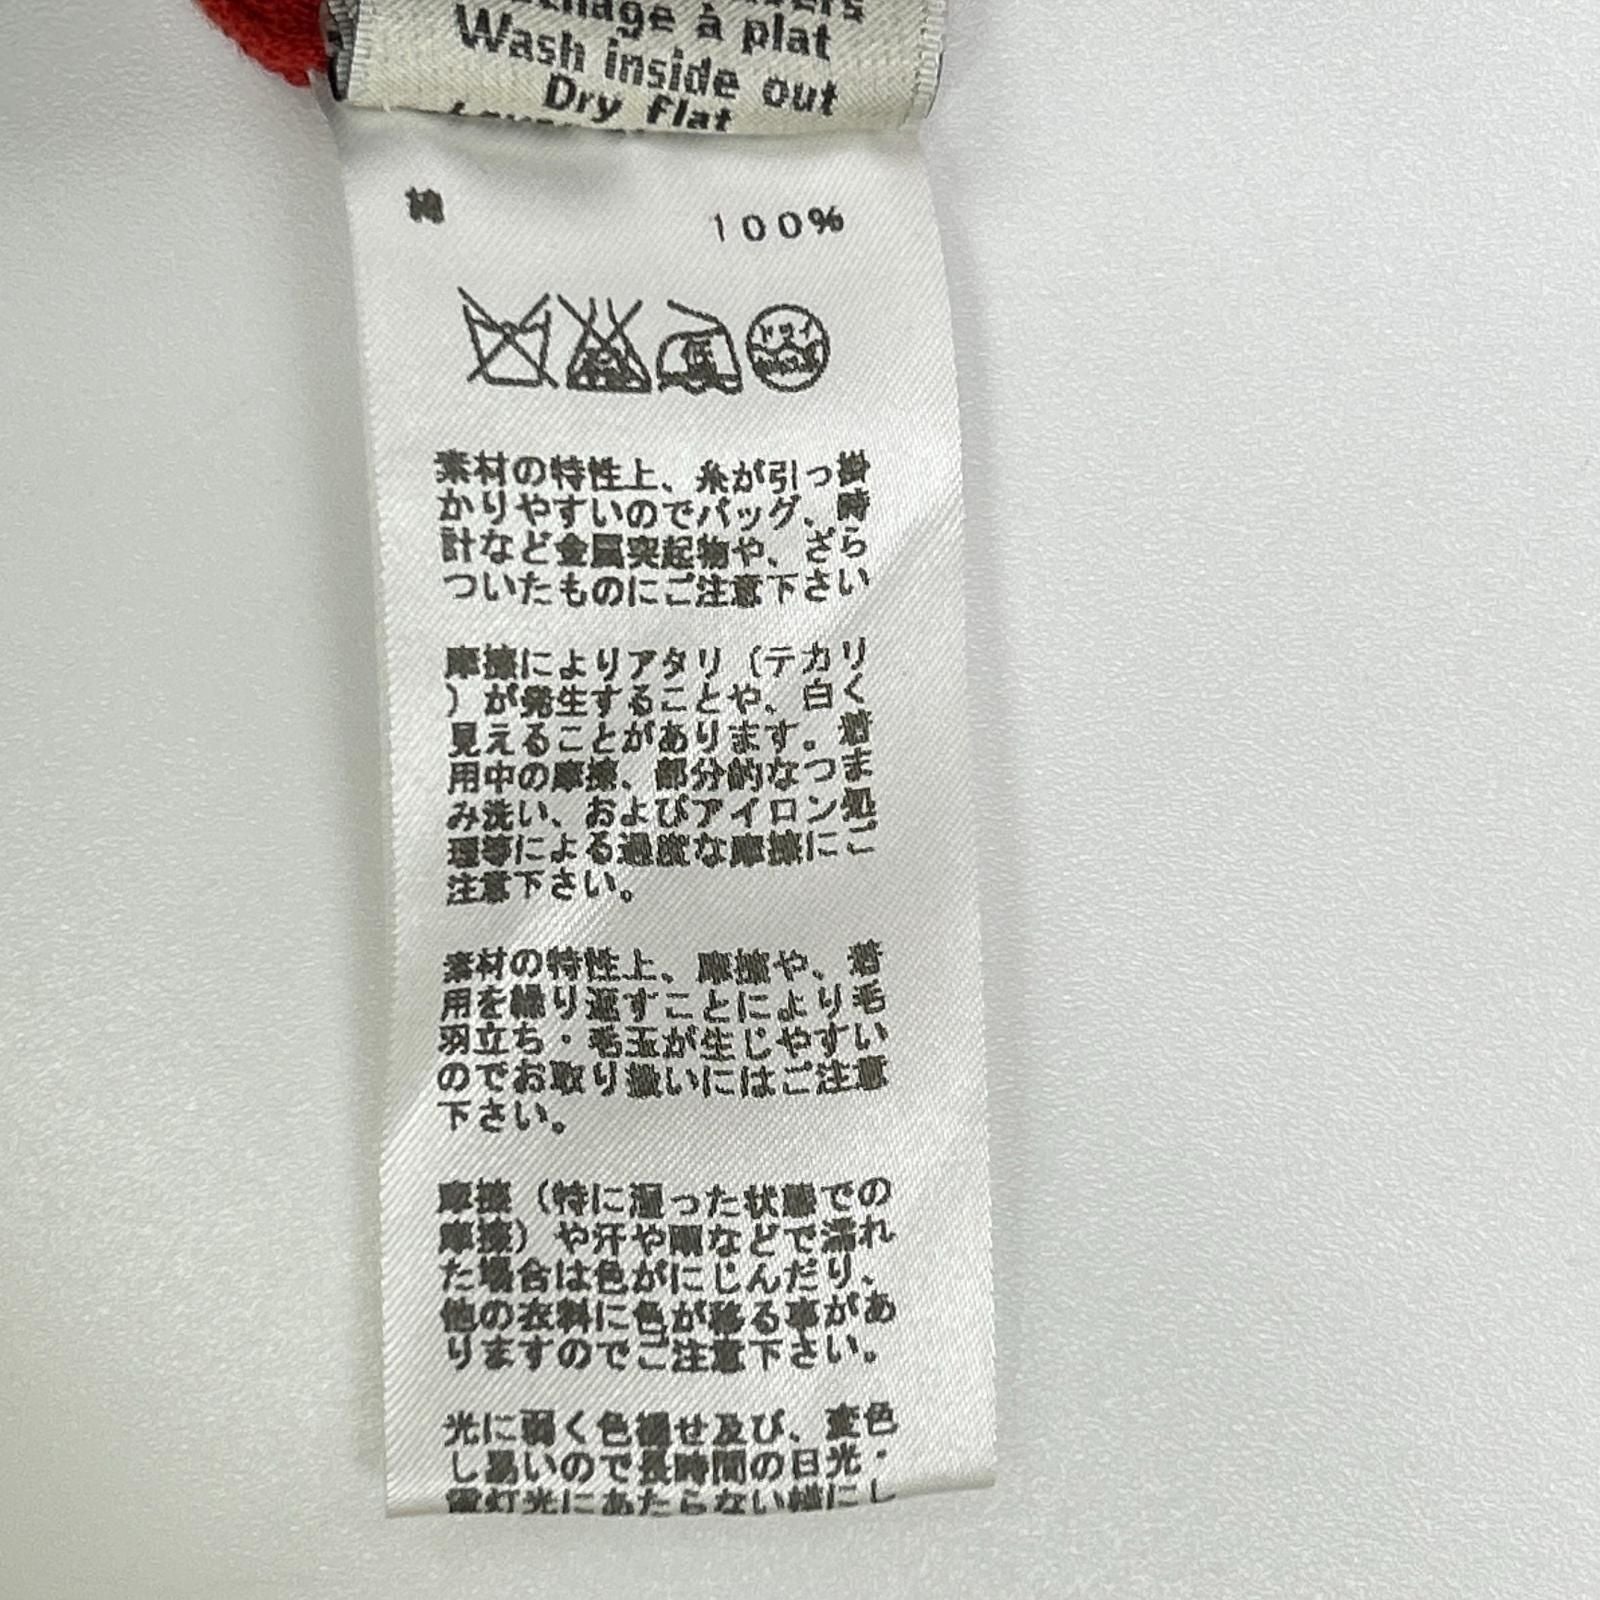 à plat
Wash inside out
Dry flat
綿 100%
低
ドライ
素材の特性上、糸が引っ掛
かりやすいのでバッグ、時
計など金属突起物や、ざら
ついたものにご注意下さい
摩擦によりアタリ(テカリ
)が発生することや、白く
見えることがあります。着
用中の摩擦、部分的なつま
み洗い、およびアイロン処
理等による過度な摩擦にご
注意下さい。
素材の特性上、摩擦や、着
用を繰り返すことにより毛
羽立ち・毛玉が生じやすい
のでお取り扱いにはご注意
下さい。
摩擦(特に湿った状態での
摩擦)や汗や雨などで濡れ
た場合は色がにじんだり、
他の衣料に色が移る事があ
りますのでご注意下さい。
光に弱く色褪せ及び、変色
し易いので長時間の日光・
電灯光にあたらない様にし